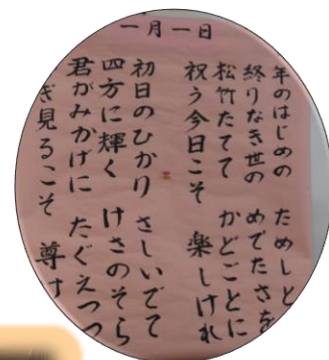 一月一日
年のはじめの ためしと
終りなき世の めでたさを
松竹たてて かどごとに
祝う今日こそ 楽しけれ
初日のひかり さしいでて
四方に輝く けさのそら
君がみかげに たぐえつつ
ぎ見るこそ 尊け